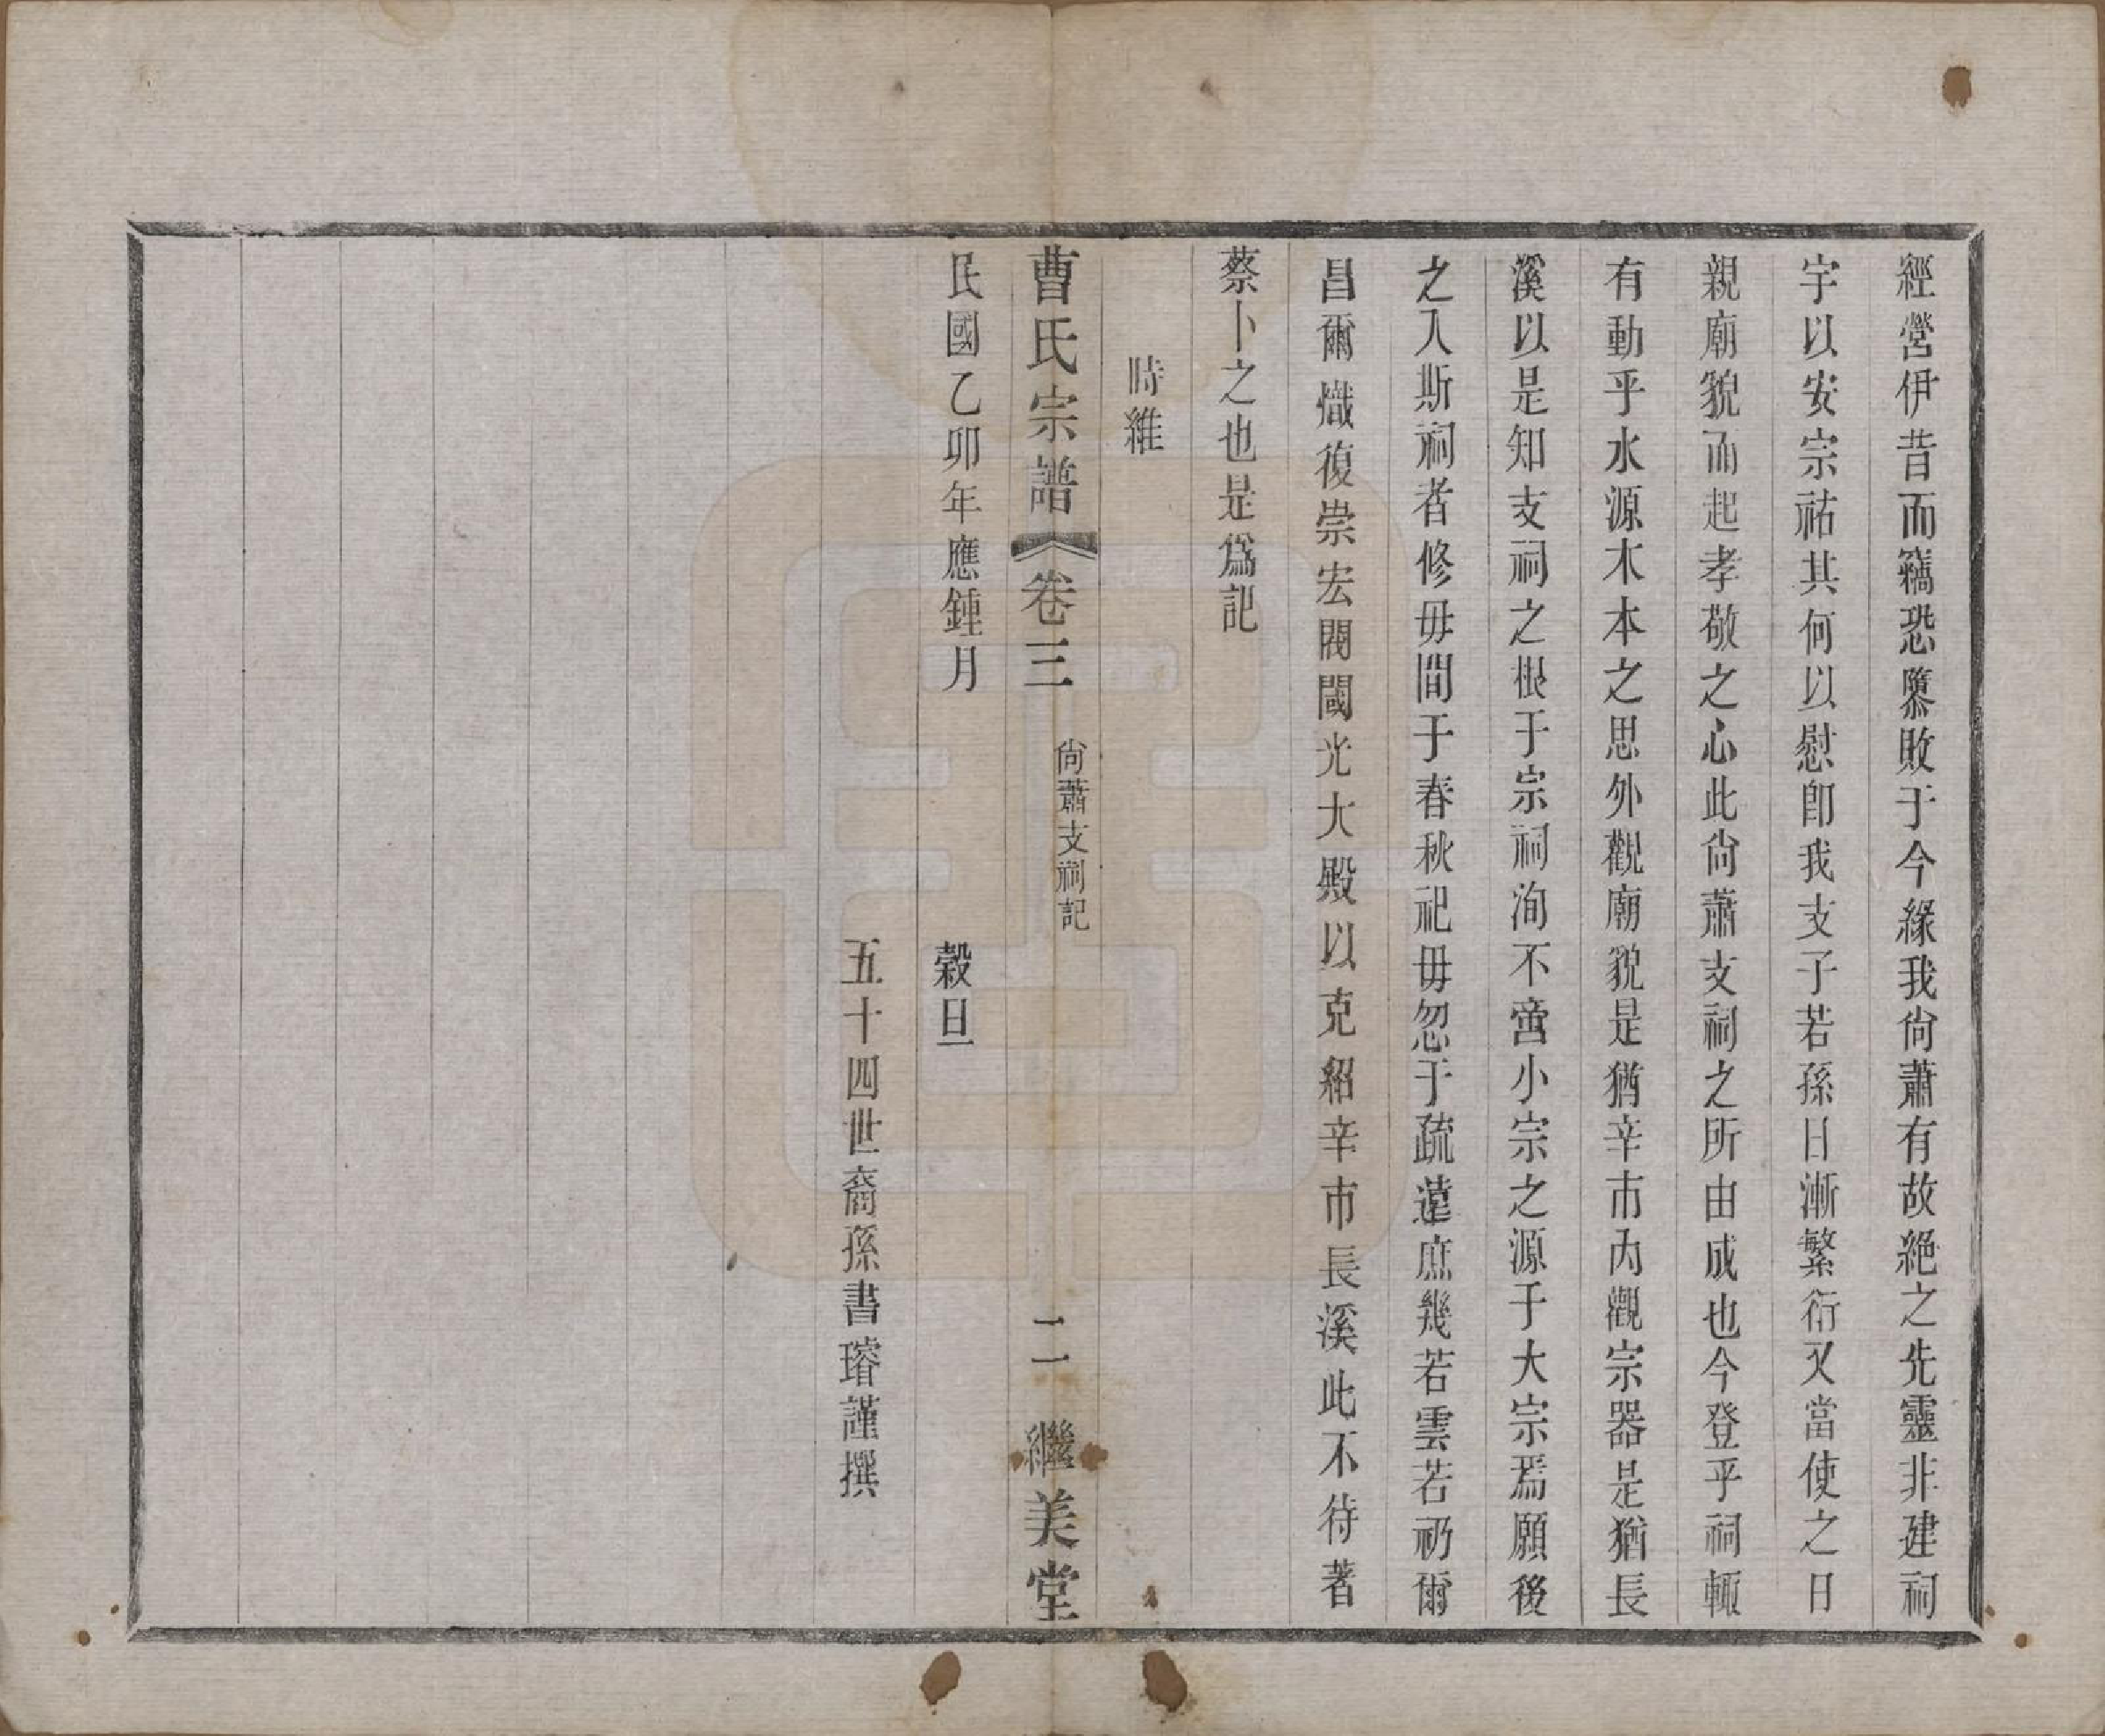 經營伊昔而竊恐隳敗于今緣我尙蕭有故絕之先靈非建祠
宇以安宗祐其何以慰卽我支子若孫日漸繁衍又當使之日
親廟貌而起孝敬之心此尙蕭支祠之所由成也今登乎祠輙
有動乎水源木本之思外觀廟貌是猶辛市內觀宗器是猶長
溪以是知支祠之根于宗祠洵不啻小宗之源于大宗焉願後
之入斯祠者修毋間于春秋祀毋忽于疏遠庶幾若雲若礽爾
昌爾熾復崇宏閥閾光大殿以克紹辛市長溪此不待著
蔡卜之也是爲記
時維
曹氏宗譜 卷三 尙蕭支祠記 二 繼美堂
民國乙卯年應鍾月 穀旦
五十四世裔孫書璿謹撰